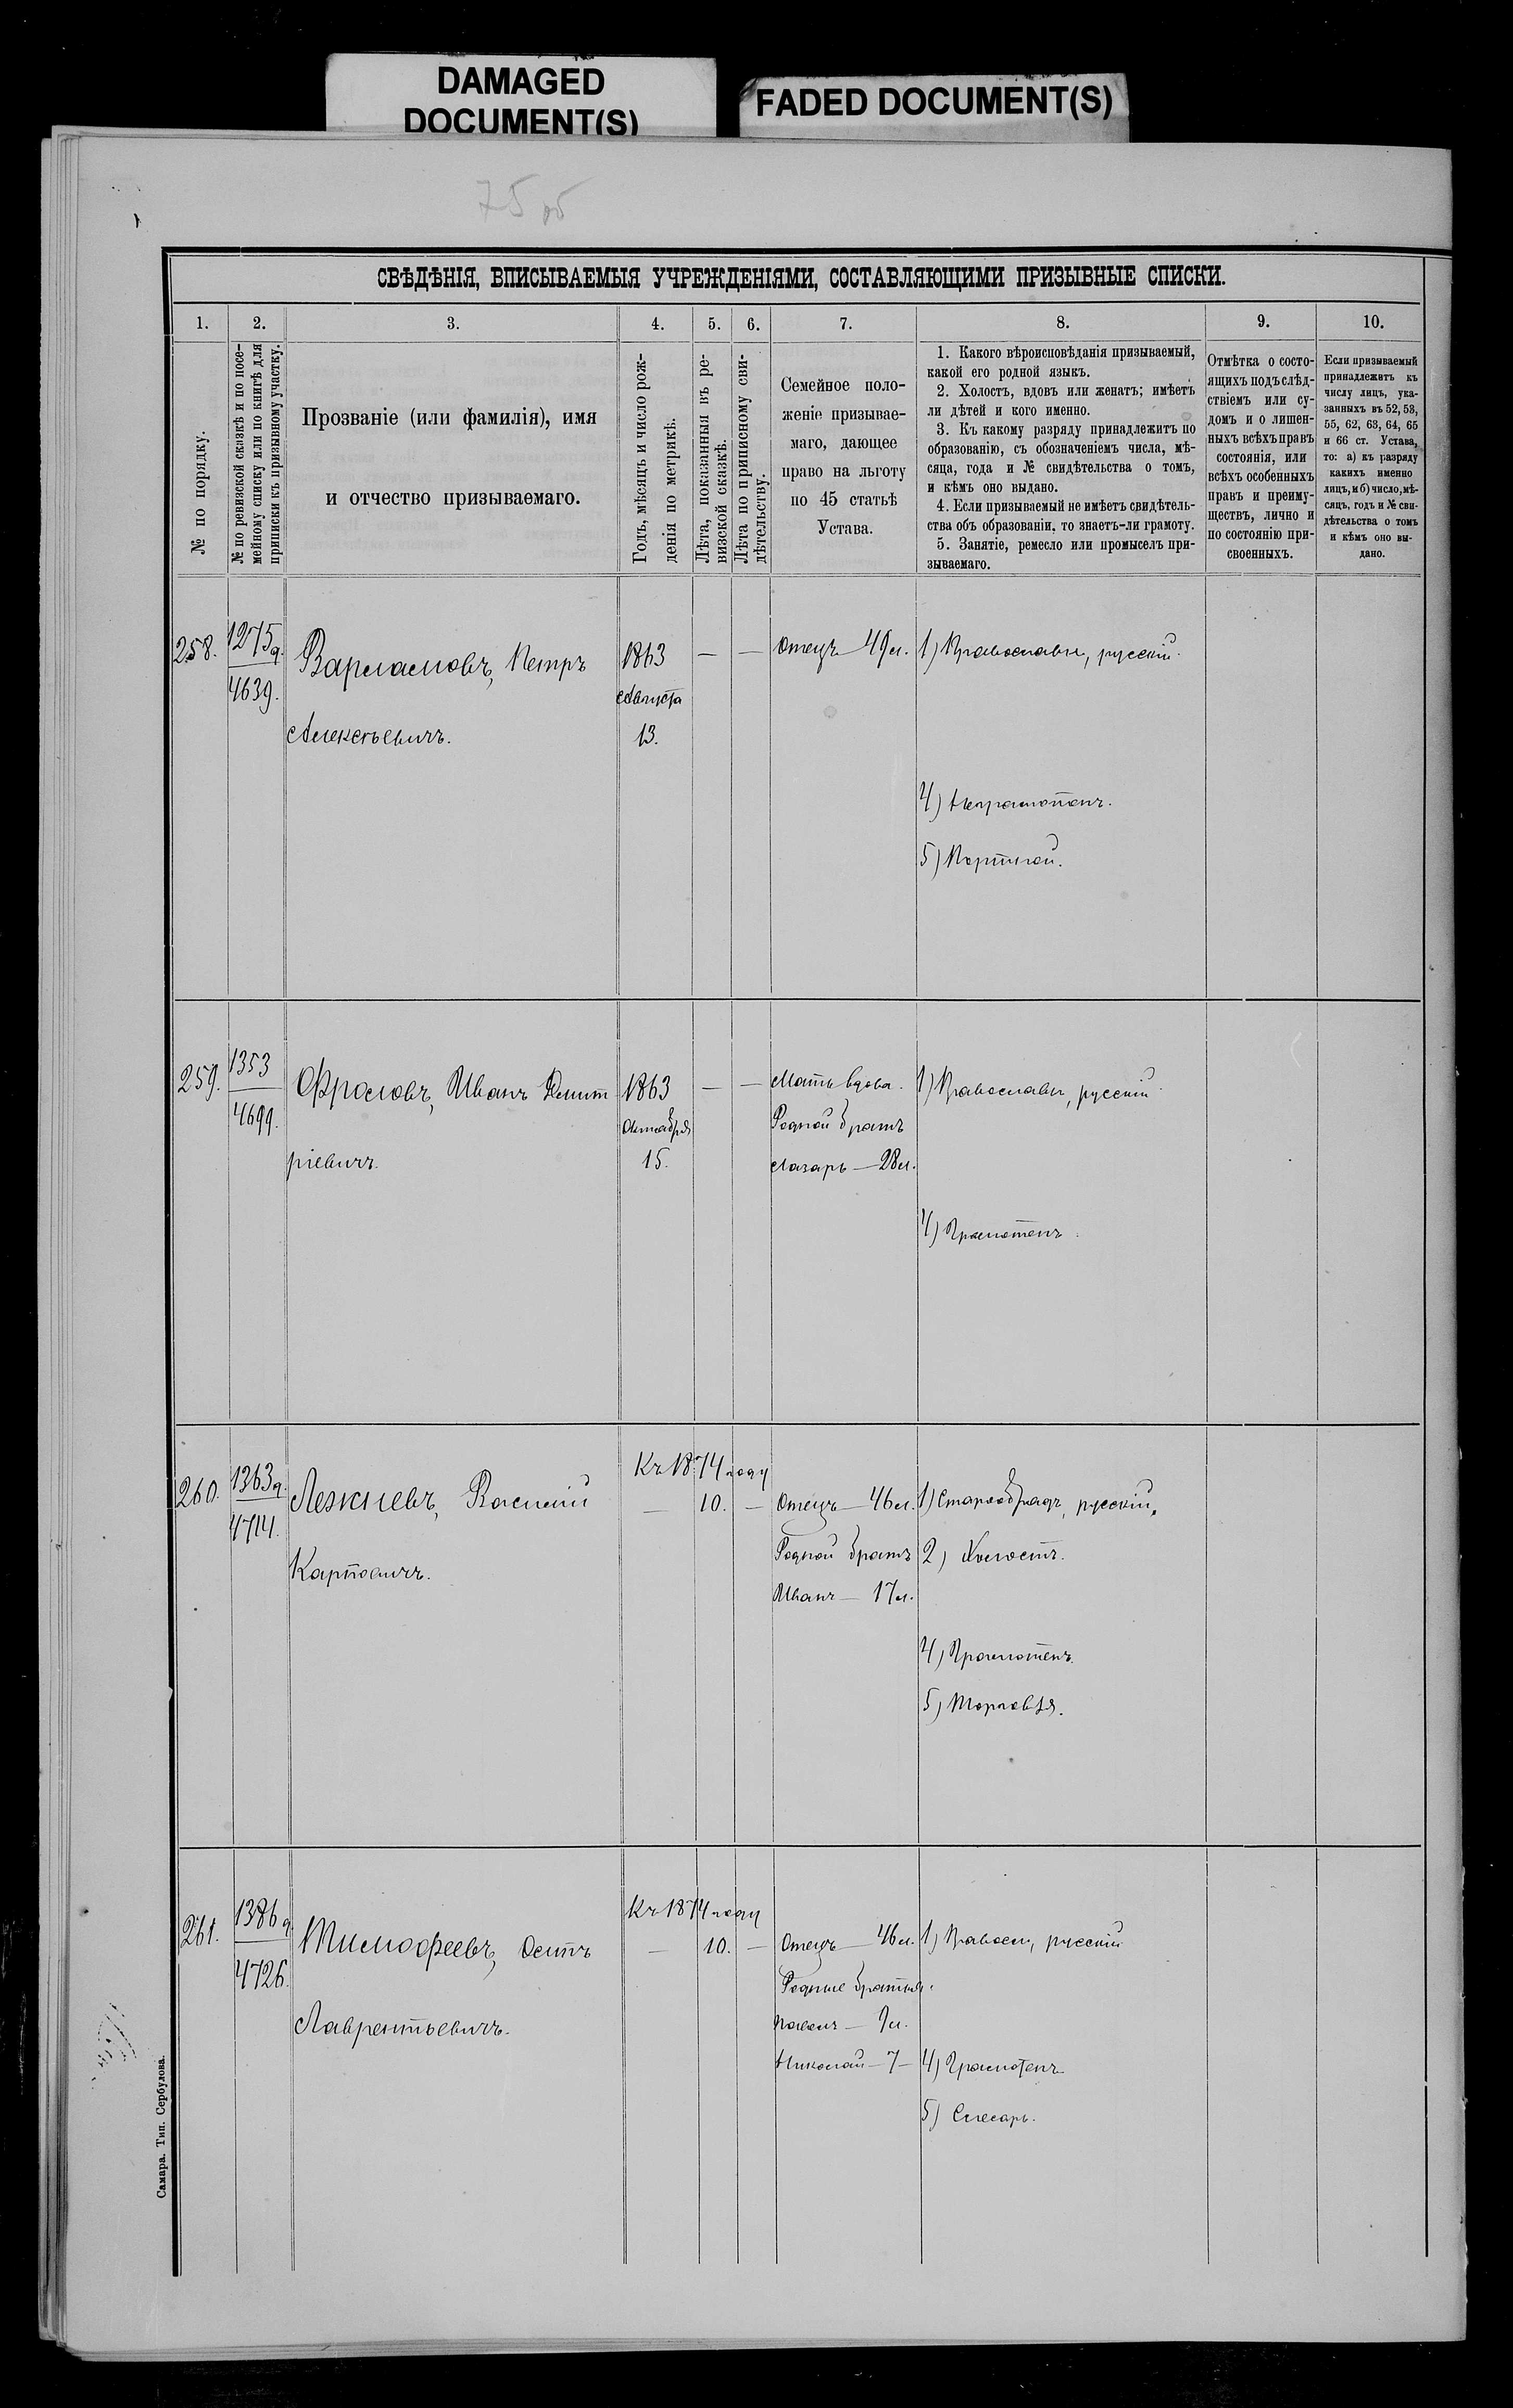 DAMAGED
DOCUMENT(S)
FADED DOCUMENT(S)
75 об
СВѢДѢНІЯ, ВПИСЫВАЕМЫЯ УЧРЕЖДЕНІЯМИ, СОСТАВЛЯЮЩИМИ ПРИЗЫВНЫЕ СПИСКИ.
1.
2.
3.
4.
5.
6.
7.
8.
9.
10.
№ по порядку.
№ по ревизской сказкѣ и по посе-
мейному списку или по книгѣ для
приписки къ призывному участку.
Прозваніе (или фамилія), имя
и отчество призываемаго.
Годъ, мѣсяцъ и число рож-
денія по метрикѣ.
Лѣта, показанныя въ ре-
визской сказкѣ.
Лѣта по приписному сви-
дѣтельству.
Семейное поло-
женіе призывае-
маго, дающее
право на льготу
по 45 статьѣ
Устава.
1. Какого вѣроисповѣданія призываемый,
какой его родной языкъ.
2. Холостъ, вдовъ или женатъ; имѣетъ
ли дѣтей и кого именно.
3. Къ какому разряду принадлежитъ по
образованію, съ обозначеніемъ числа, мѣ-
сяца, года и № свидѣтельства о томъ,
и кѣмъ оно выдано.
4. Если призываемый не имѣетъ свидѣтель-
ства объ образованіи, то знаетъ-ли грамоту.
5. Занятіе, ремесло или промыселъ при-
зываемаго.
Отмѣтка о состо-
ящихъ подъ слѣд-
ствіемъ или су-
домъ и о лишен-
ныхъ всѣхъ правъ
состоянія, или
всѣхъ особенныхъ
правъ и преиму-
ществъ, лично и
по состоянію при-
своенныхъ.
Если призываемый
принадлежитъ къ
числу лицъ, ука-
занныхъ въ 52, 53,
55, 62, 63, 64, 65
и 66 ст. Устава,
то: а) къ разряду
какихъ именно
лицъ, и б) число, мѣ-
сяцъ, годъ и № сви-
дѣтельства о томъ
и кѣмъ оно вы-
дано.
258.
1275а.
4639.
Варламовъ, Петръ
Алексѣевичъ.
1863
Августа
13.
— —
Отецъ — 49 л.
1) Православн, русскій.
4) Неграмотенъ.
5) Портной.
259.
1353
4699.
Фроловъ, Иванъ Дмит
ріевичъ.
1863
Октября
15.
— —
Мать вдова.
Родной братъ
Лазарь — 28 л.
1) Православн, русскій
4) Грамотенъ.
260.
1363а.
4714.
Лежневъ, Василій
Карповичъ.
Къ 1874 году
— 10. —
Отецъ — 46 л.
Родной братъ
Иванъ — 17 л.
1) Старообрядъ, русскій.
2) Холостъ.
4) Грамотенъ.
5) Торговля.
261.
1386а
4726.
Тимофеевъ, Осипъ
Лаврентьевичъ.
Къ 1874 году
— 10. —
Отецъ — 46 л.
Родные братья.
Павелъ — 9 л.
Николай — 7 —
1) Правосл, русскій
4) Грамотенъ
5) Слесарь.
Самара. Тип. Сербулова.